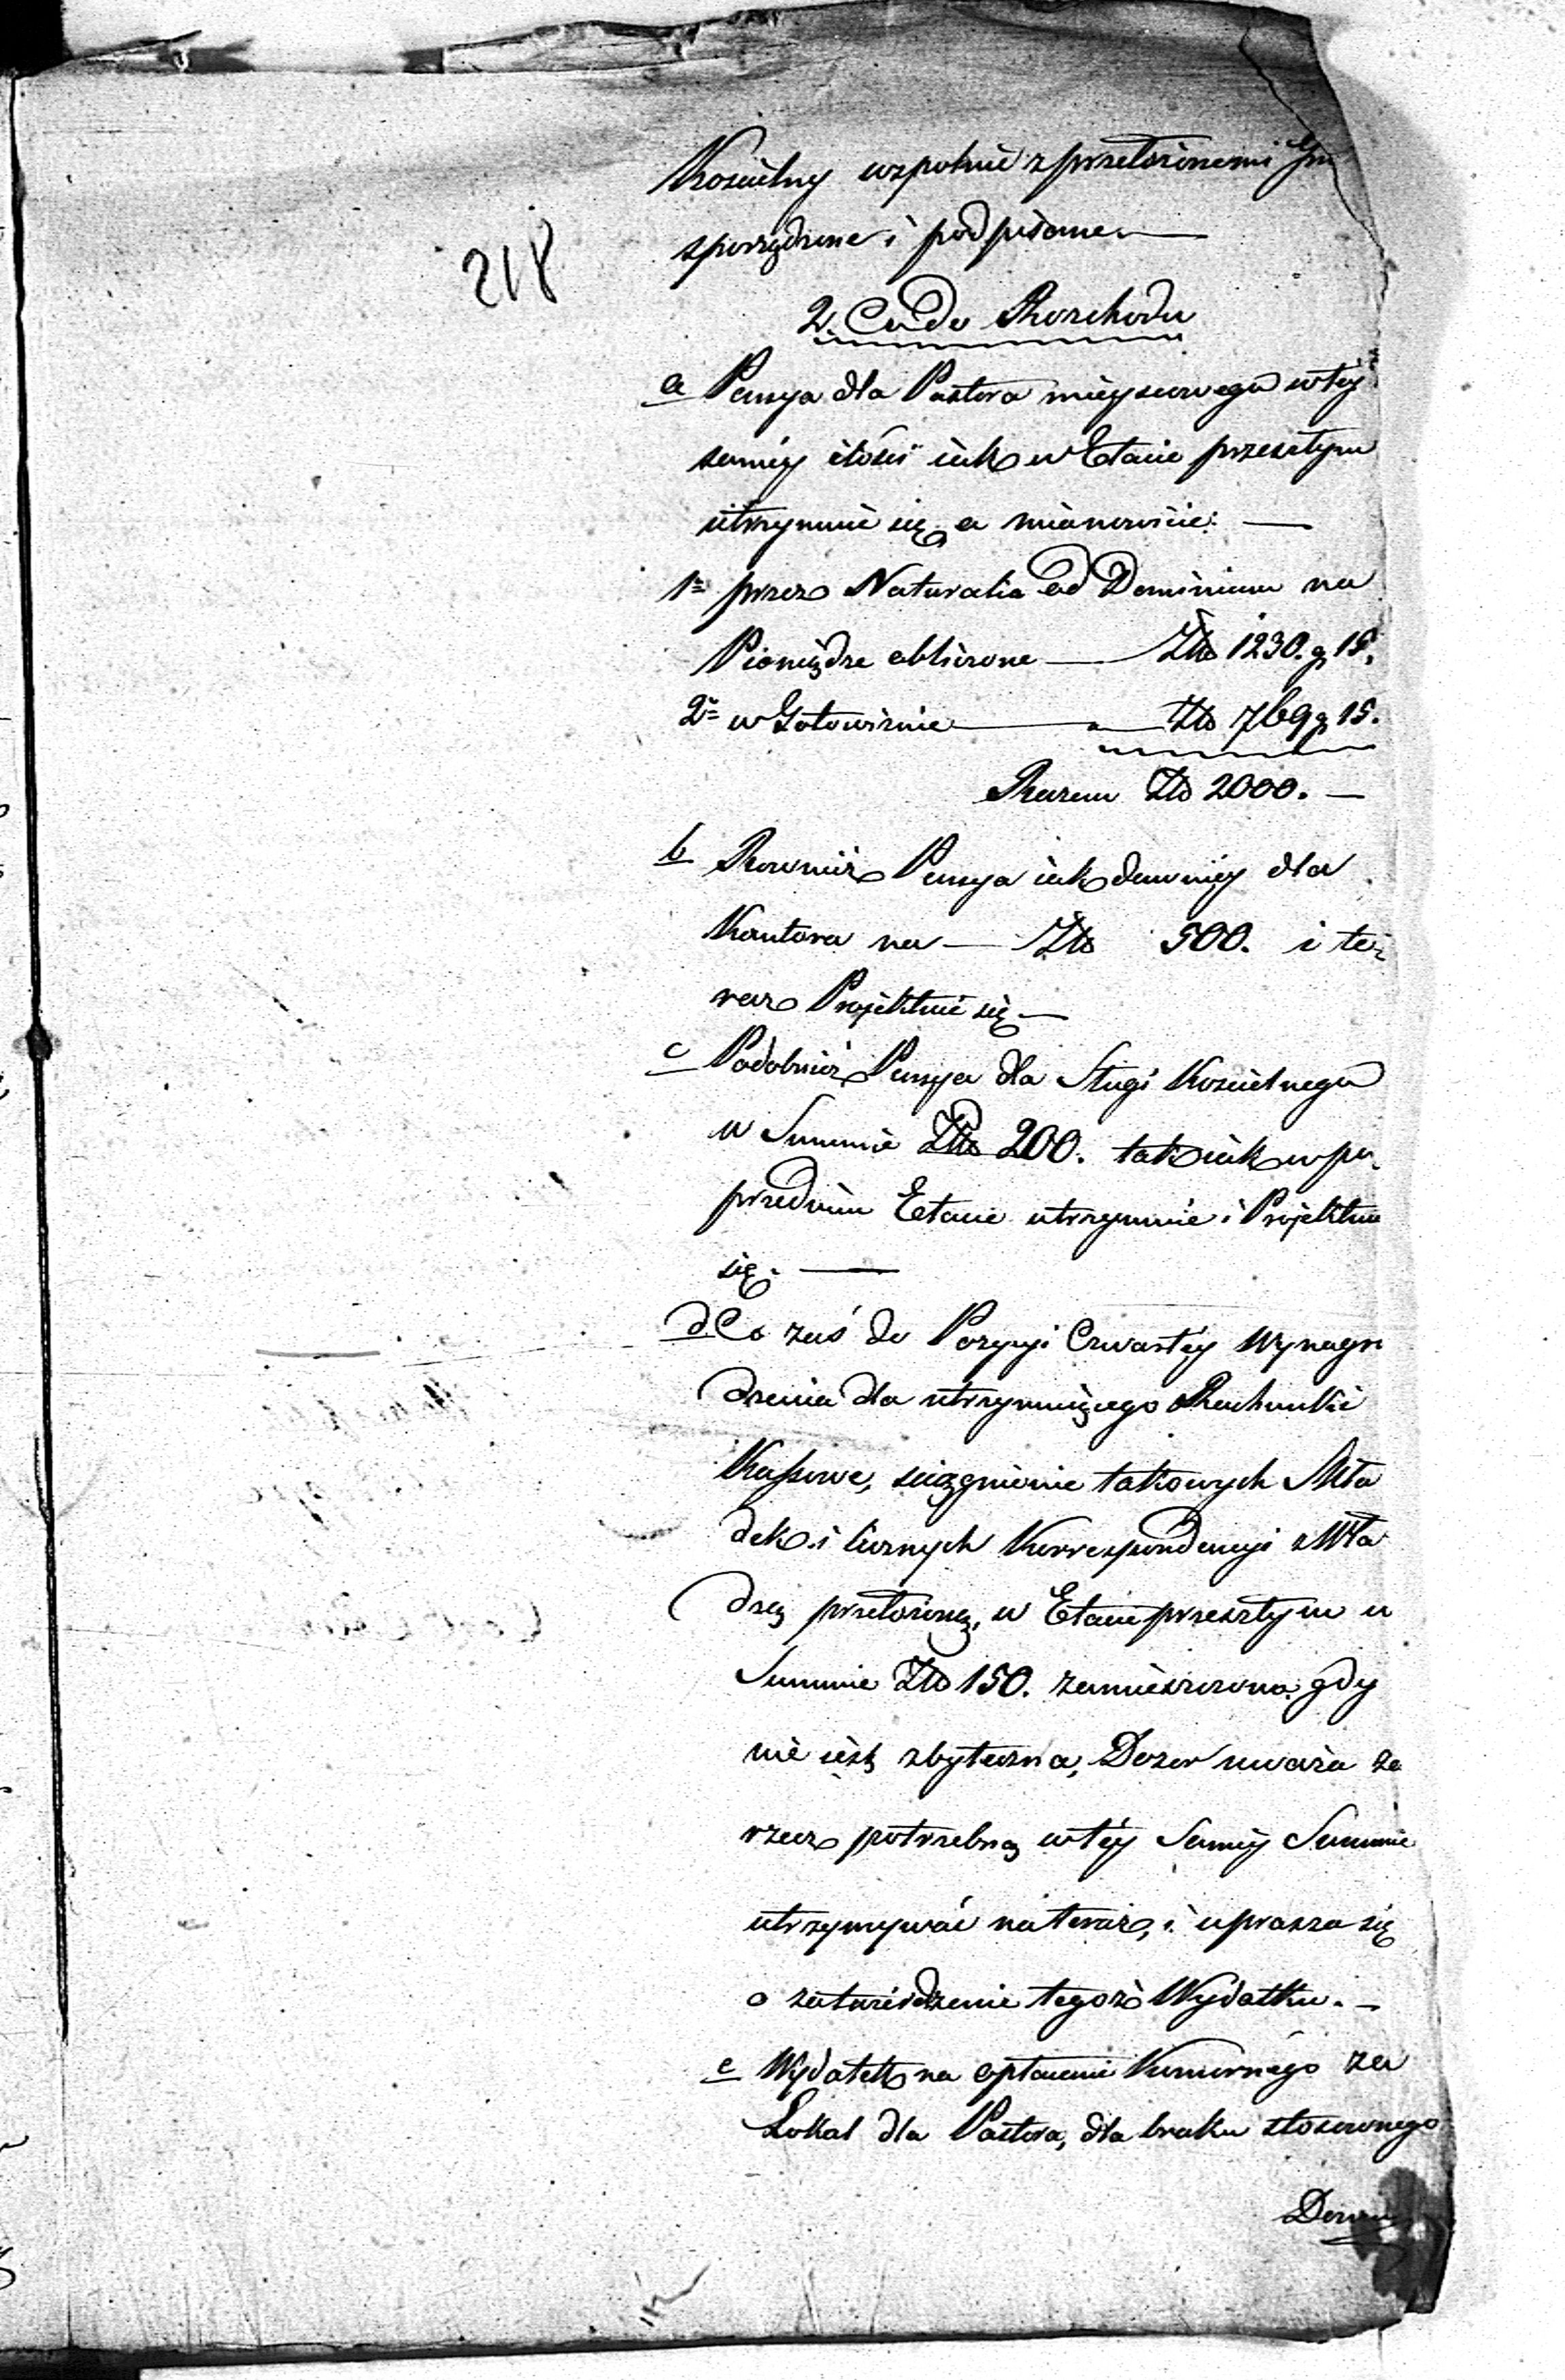 Koscielny wspolnie z przełożonemi Gm
sporządzone i podpisane. —
218
2. Co do Rozchodu
a Pensya dla Pastora mieyscowego w téy
saméy ilości iak w Etacie przeszłym
utrzymuie się, a mianowicie: —
1mo przez Naturalia od Dominium na
Pieniądze obliczone — Złp 1230. g 15.
2do w Gotowiznie — Złp 769 g 15.
Razem Złp 2000. —
b Rownież Pensya iak dawniéy dla
Kantora na — Złp 500. i te-
raz Projektuie się —
c Podobnież Pensya dla Sługi Koscielnego
w Summie Złp 200. tak iak w po-
przednim Etacie utrzymuie i Projektuie
się. —
d Co zaś do Pozycyi Czwartéy Wynagro
dzenia dla utrzymuiącego Rachunki
Kassowe, sciągnienie takowych Skła
dek i licznych Korrespondencyi z Wła
dzą przełożoną, w Etacie przeszłym w
Summie Złp 150. zamieszczona, gdy
nie iest zbyteczna, Dozor uważa za
rzecz potrzebną w téy Saméy Summie
utrzymywać na teraz, i uprasza się
o zatwierdzenie tegoż Wydatku. —
e Wydatek na opłacenie Komornégo za
Lokal dla Pastora, dla braku stosownego